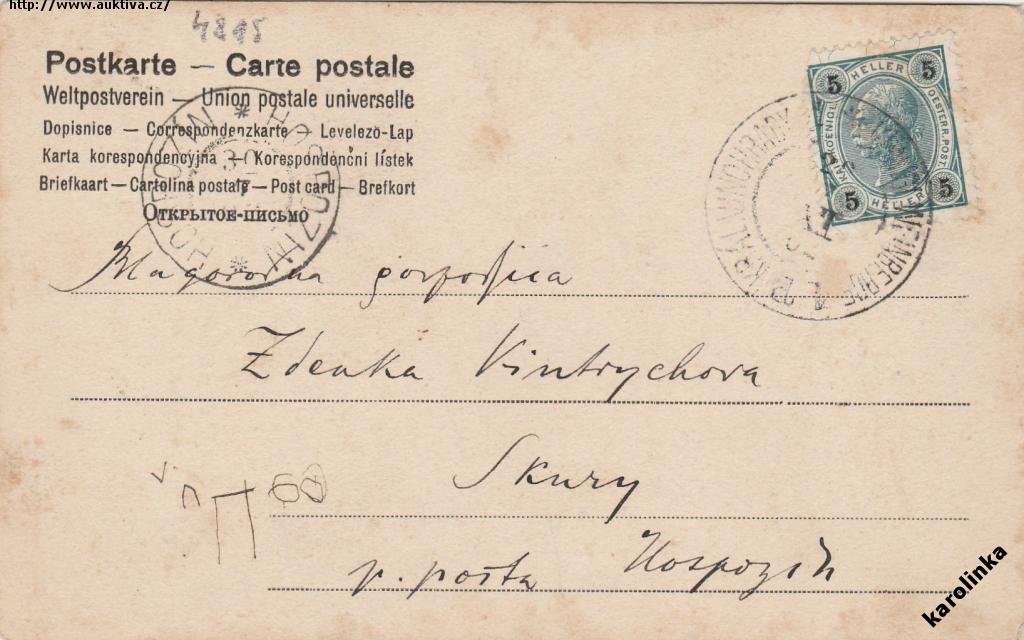 http://www.auktiva.cz/
4815
Postkarte — Carte postale
Weltpostverein — Union postale universelle
Dopisnice — Correspondenzkarte — Levelezö-Lap
Karta korespondencyjna — Korespondenčni lístek
Briefkaart — Cartolina postale — Post card — Brefkort
Открытое-письмо
HOSPOZÍN * HOSPOZIN *
30
7
5 HELLER 5
KAIS. KOENIGL. OESTERR. POST.
5 HELLER 5
KRÁL. VINOHRADY
17
Blagorodna gospodjica
Zdenka Vintrychova
Skury
p. pošta Hospozín
karolinka